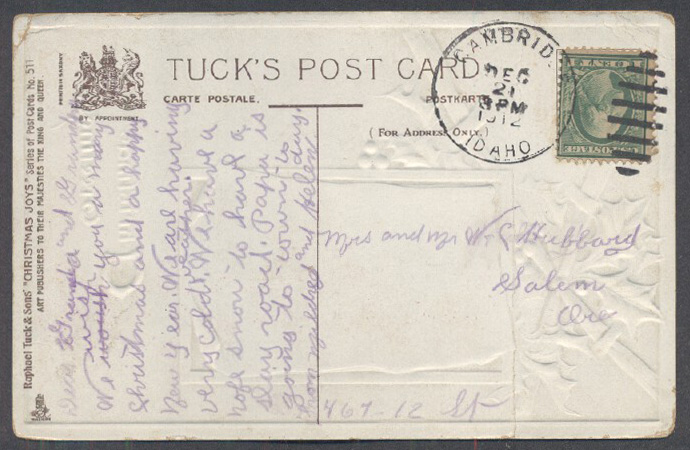 Raphael Tuck & Sons' "CHRISTMAS JOYS" Series of Post Cards No. 511
ART PUBLISHERS TO THEIR MAJESTIES THE KING AND QUEEN
PRINTED IN SAXONY
BY APPOINTMENT
TUCK'S POST CARD
CARTE POSTALE.
POSTKARTE
(FOR ADDRESS ONLY.)
CAMBRIDGE
DEC
21
PM
1912
IDAHO
Dear Grandpa and Grandma
wish
We you a merry
Christmas and a happy
New Year. We are having
weather
very cold. We have a
hope snow to have a
sleigh road. Papa is
going to town to day.
from Mildred and Helen
Mrs and Mr W. C. Hubbard
Salem
Ore
467-12 St